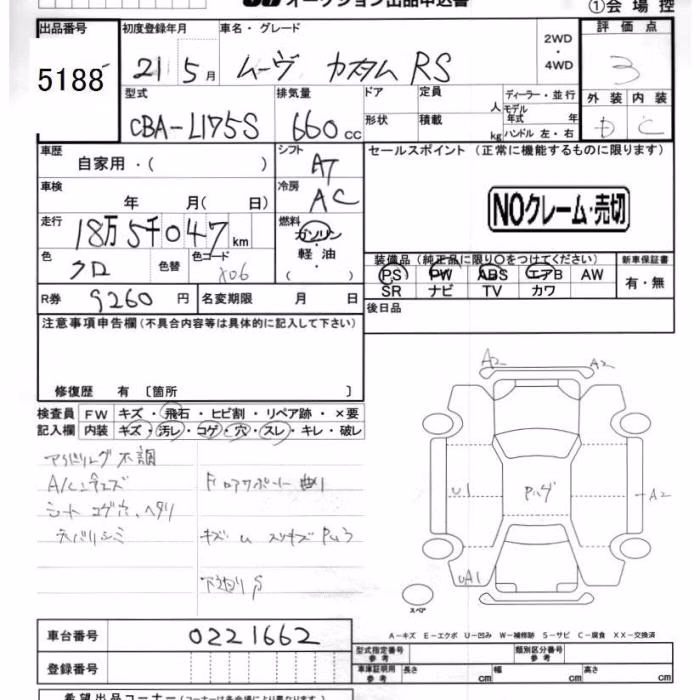 オークション出品申込書
①会場控
出品番号 初度登録年月 車名・グレード 2WD ・ 4WD 評価点
5188 21 5月 ムーヴ カスタム RS 3
型式 排気量 ドア 定員 人 ディーラー・並行 外装 内装
CBA-L175S 660cc 形状 積載 kg モデル年式 年 ハンドル 左・右 D C
車歴 自家用・( ) シフト AT セールスポイント (正常に機能するものに限ります)
車検 年 月( 日) 冷房 AC
NOクレーム・売切
走行 18万5千047km 燃料 ガソリン・軽油・( )
色 クロ 色替 色コード X06
装備品 (純正品に限り○をつけてください) 新車保証書
PS PW ABS エアB AW 有・無
SR ナビ TV カワ
R券 9260円 名変期限 月 日 後日品
注意事項申告欄 (不具合内容等は具体的に記入して下さい)
修復歴 有 〔箇所 〕
検査員記入欄 FW キズ・飛石・ヒビ割・リペア跡・×要
内装 キズ・汚レ・コゲ・穴・スレ・キレ・破レ
A2 A2
アイドリング不調
シート コゲ穴、ヘタリ
U1 A2
UA1
スペア
A-キズ E-エクボ U-凹み W-補修跡 S-サビ C-腐食 XX-交換済
車台番号 0221662
型式指定番号 参考 類別区分番号 参考
登録番号 車庫証明用 参考 長さ cm 幅 cm 高さ cm
希望出品コーナー